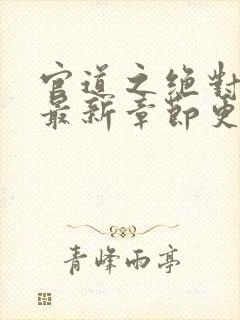 官道之绝对
最新章节更
青峰雨亭